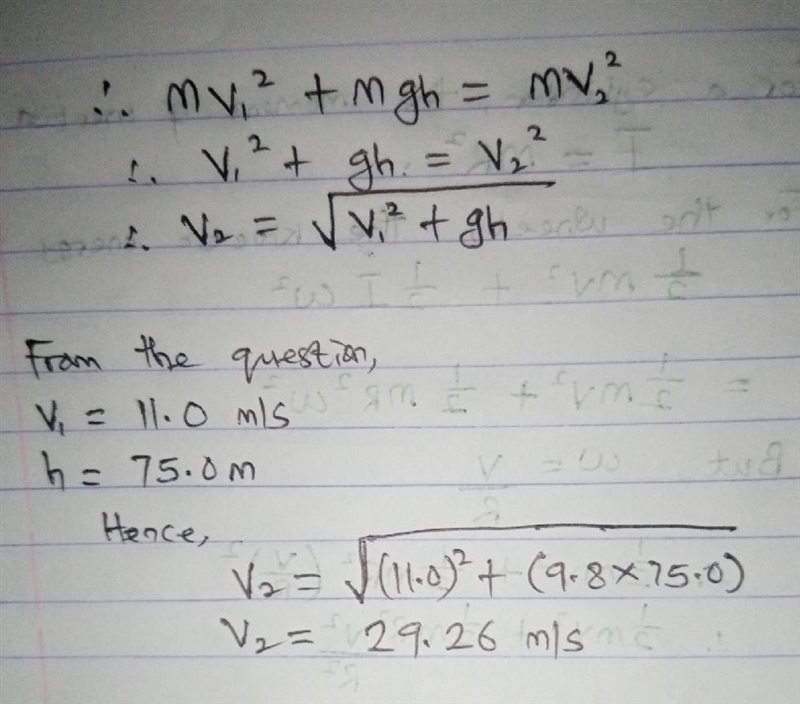 ∴ mv₁² + mgh = mv₂²
∴ v₁² + gh = v₂²
∴ v₂ = √(v₁² + gh)
From the question,
v₁ = 11.0 m/s
h = 75.0 m
Hence,
v₂ = √((11.0)² + (9.8×75.0))
v₂ = 29.26 m/s